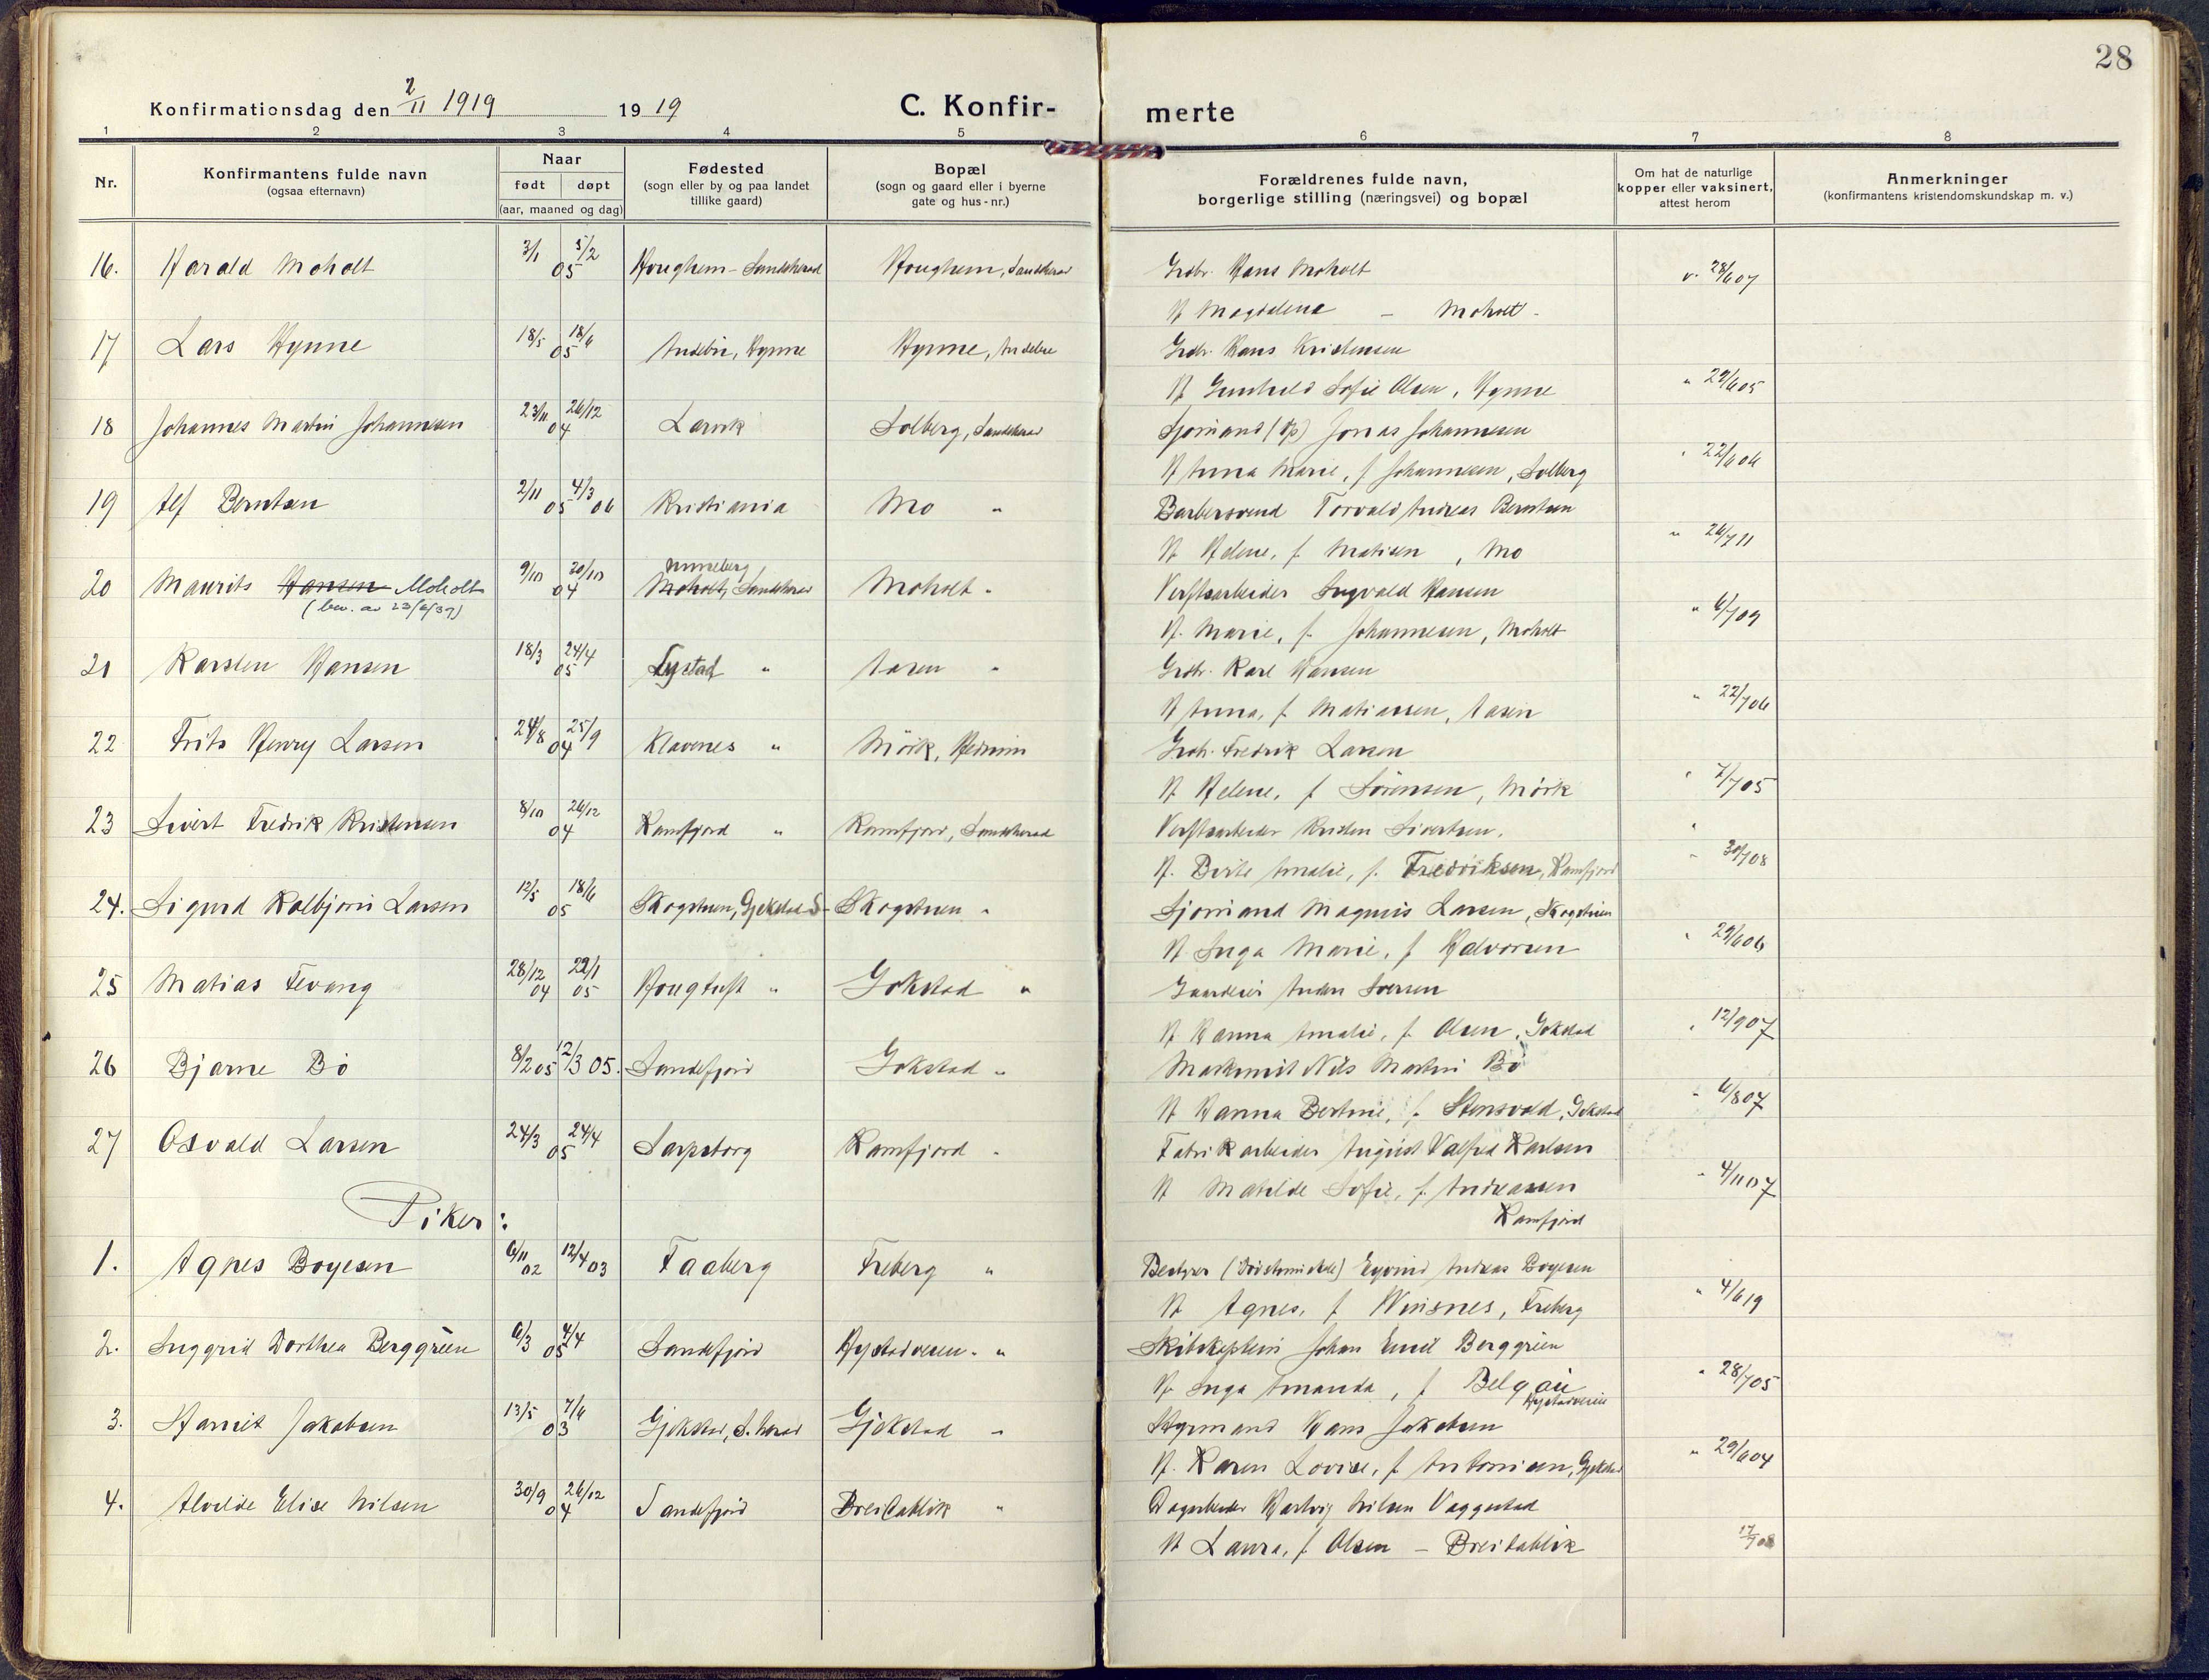 28
Konfirmationsdag den 2/11 1919 1919 C. Konfir- merte
1 2 3 4 5 6 7 8
Nr. Konfirmantens fulde navn (ogsaa efternavn) Naar født døpt (aar, maaned og dag) Fødested (sogn eller by og paa landet tillike gaard) Bopæl (sogn og gaard eller i byerne gate og hus-nr.) Forældrenes fulde navn, borgerlige stilling (næringsvei) og bopæl Om hat de naturlige kopper eller vaksinert, attest herom Anmerkninger (konfirmantens kristendomskundskap m. v.)
16. Harald Moholt 3/1 5/2 05 Houghem - Sandeherad Houghem, Sandeherad Grdbr. Hans Moholt v. 28/6 07
H Magdalena - Moholt -
17 Lars Hynne 18/5 18/6 05 Andebu, Hynne Hynne, Andebu Grdbr. Hans Kristensen
H Gunhild Sofie Olsen, Hynne " 29/6 05
18 Johannes Martin Johannesen 23/11 26/12 04 Larvik Solberg, Sandeherad Sjømand Jonas Johannesen
H Anna Marie, f Johannesen, Solberg " 22/6 06
19 Alf Berntsen 2/11 05 4/3 06 Kristiania Mo " Barbersvend Torvald Andreas Berntsen
H Helene, f. Matisen, Mo " 26/7 11
20 Maurits Hansen Moholt 9/10 20/10 04 Nuneberg Moholt, Sandeherad Moholt " Verftsarbeider Ingvald Hansen
(bev. av 23/6/37)
H. Marie, f. Johannesen, Moholt " 6/7 09
21 Karsten Hansen 18/3 24/4 05 Lystad " Aasen " Grdbr. Karl Hansen
H Anna, f. Matiassen, Aasen " 22/7 06
22 Frits Henry Larsen 24/8 25/9 04 Klavenes " Mörk, Hedrum Grdbr. Fredrik Larsen
H Helene, f Sörensen, Mörk " 7/7 05
23 Sivert Fredrik Kristensen 8/10 26/12 04 Kamfjord " Kamfjord, Sandeherad Verftsarbeider Kristen Sivertsen.
H. Berte Amalie, f. Fredriksen, Kamfjord " 30/7 08
24. Sigurd Kolbjørn Larsen 12/5 18/6 05 Skogstuen, Gjekstad S- Skogstuen " Sjømand Magnus Larsen, Skogstuen
H Inga Marie, f Halvorsen " 29/6 06
25 Matias Fevang 28/12 04 22/1 05 Hougtuft " Gokstad " Gaardeier Anders Iversen
H Hanna Amalie, f. Olsen, Gokstad " 12/9 07
26 Bjarne Bö 8/2 05 12/3 05. Sandefjord Gokstad " Maskinist Nils Martin Bö
H Hanna Bertine, f. Stensvold, Gokstad " 6/8 07
27 Osvald Larsen 24/3 24/4 05 Sarpsborg Kamfjord " Fabrikarbeider August Valfred Karlsen
H Matilde Sofie, f. Andreassen " 4/11 07
Kamfjord
Piker:
1. Agnes Boyesen 6/11 02 12/4 03 Faaberg Freberg " Bestyrer (Dövstumskole) Eyvind Andreas Boyesen
H Agnes, f Winsnes, Freberg " 4/6 19
2. Inggrid Dorthea Berggreen 6/3 4/4 05 Sandefjord Hystadveien " Skibskaptein Johan Emil Berggreen
H Inga Amanda, f Belgau " 28/7 05
Hystadveien
3. Harriet Jakobsen 13/5 7/6 03 Gjekstad, S.herad Gjekstad " Styrmand Hans Jakobsen
H. Karen Lovise, f Antonisen, Gjekstad " 29/6 04
4. Alvilde Elise Nilsen 30/9 26/12 04 Sandefjord Breidablik " Dagarbeider Hartvig Nilsen Vaggestad
H Laura, f. Olsen - Breidablik 17/7 08